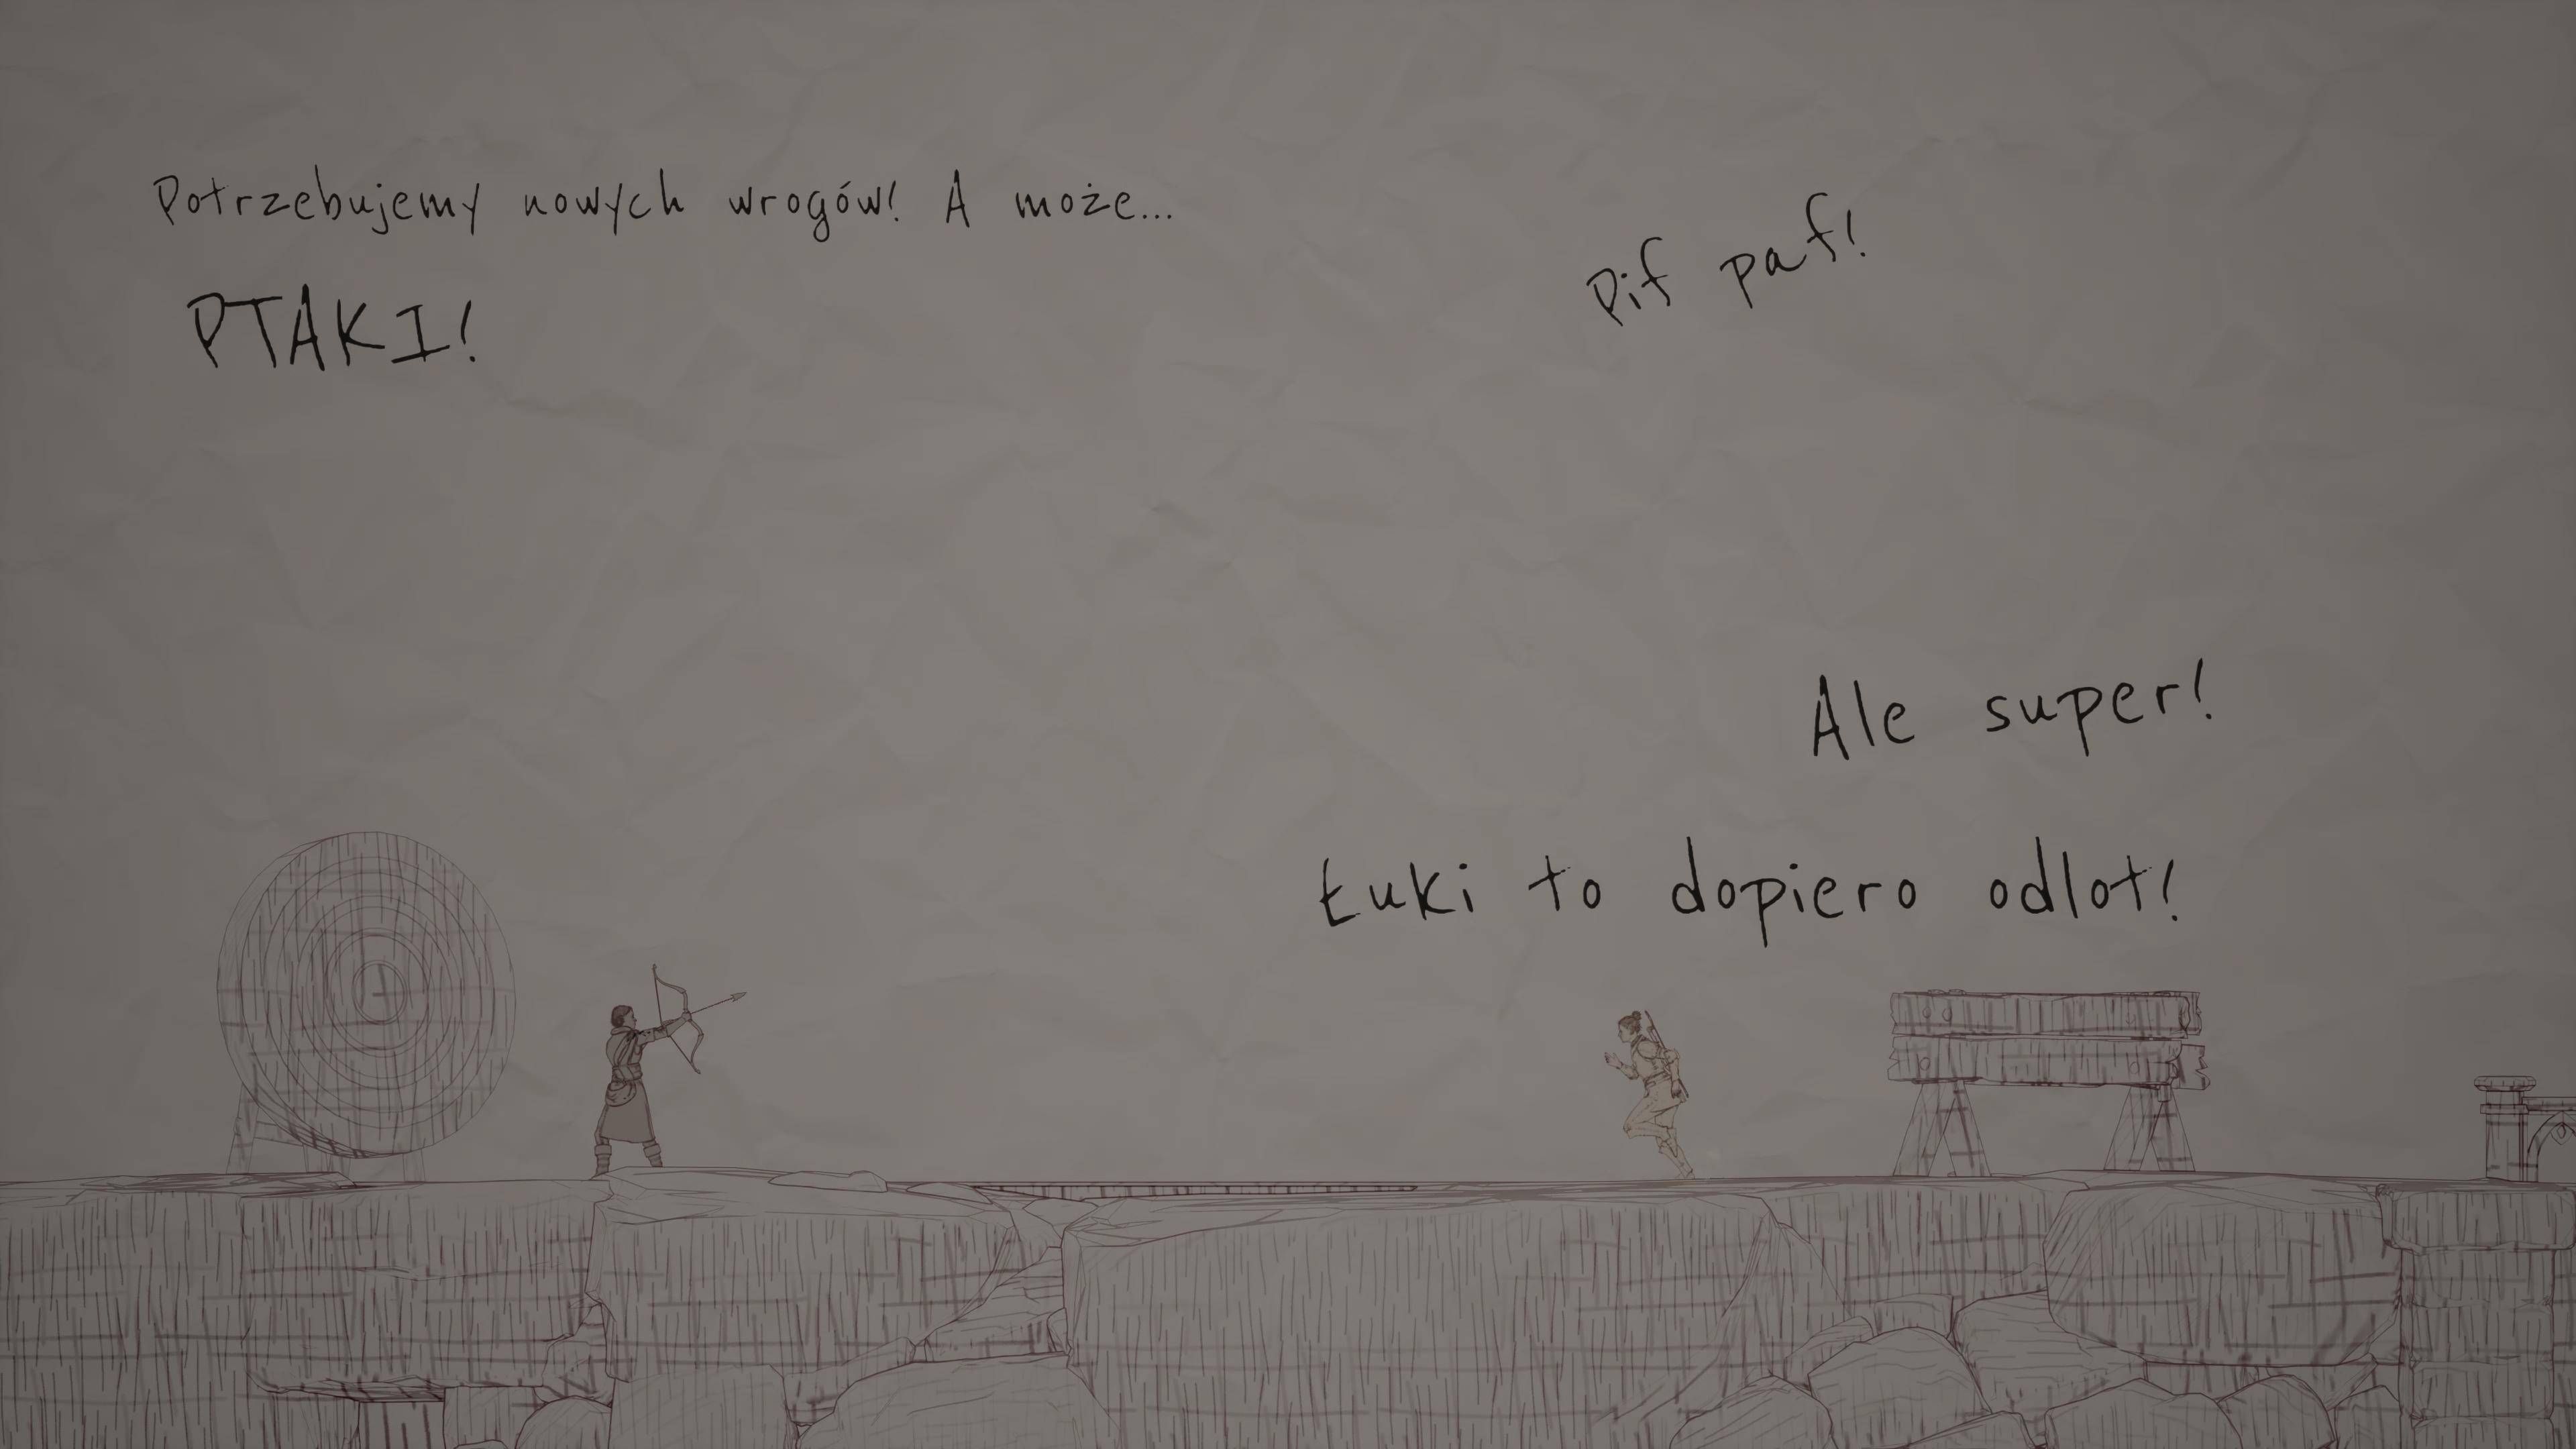 Potrzebujemy nowych wrogów! A może...
PTAKI!
Pif paf!
Ale super!
Łuki to dopiero odlot!